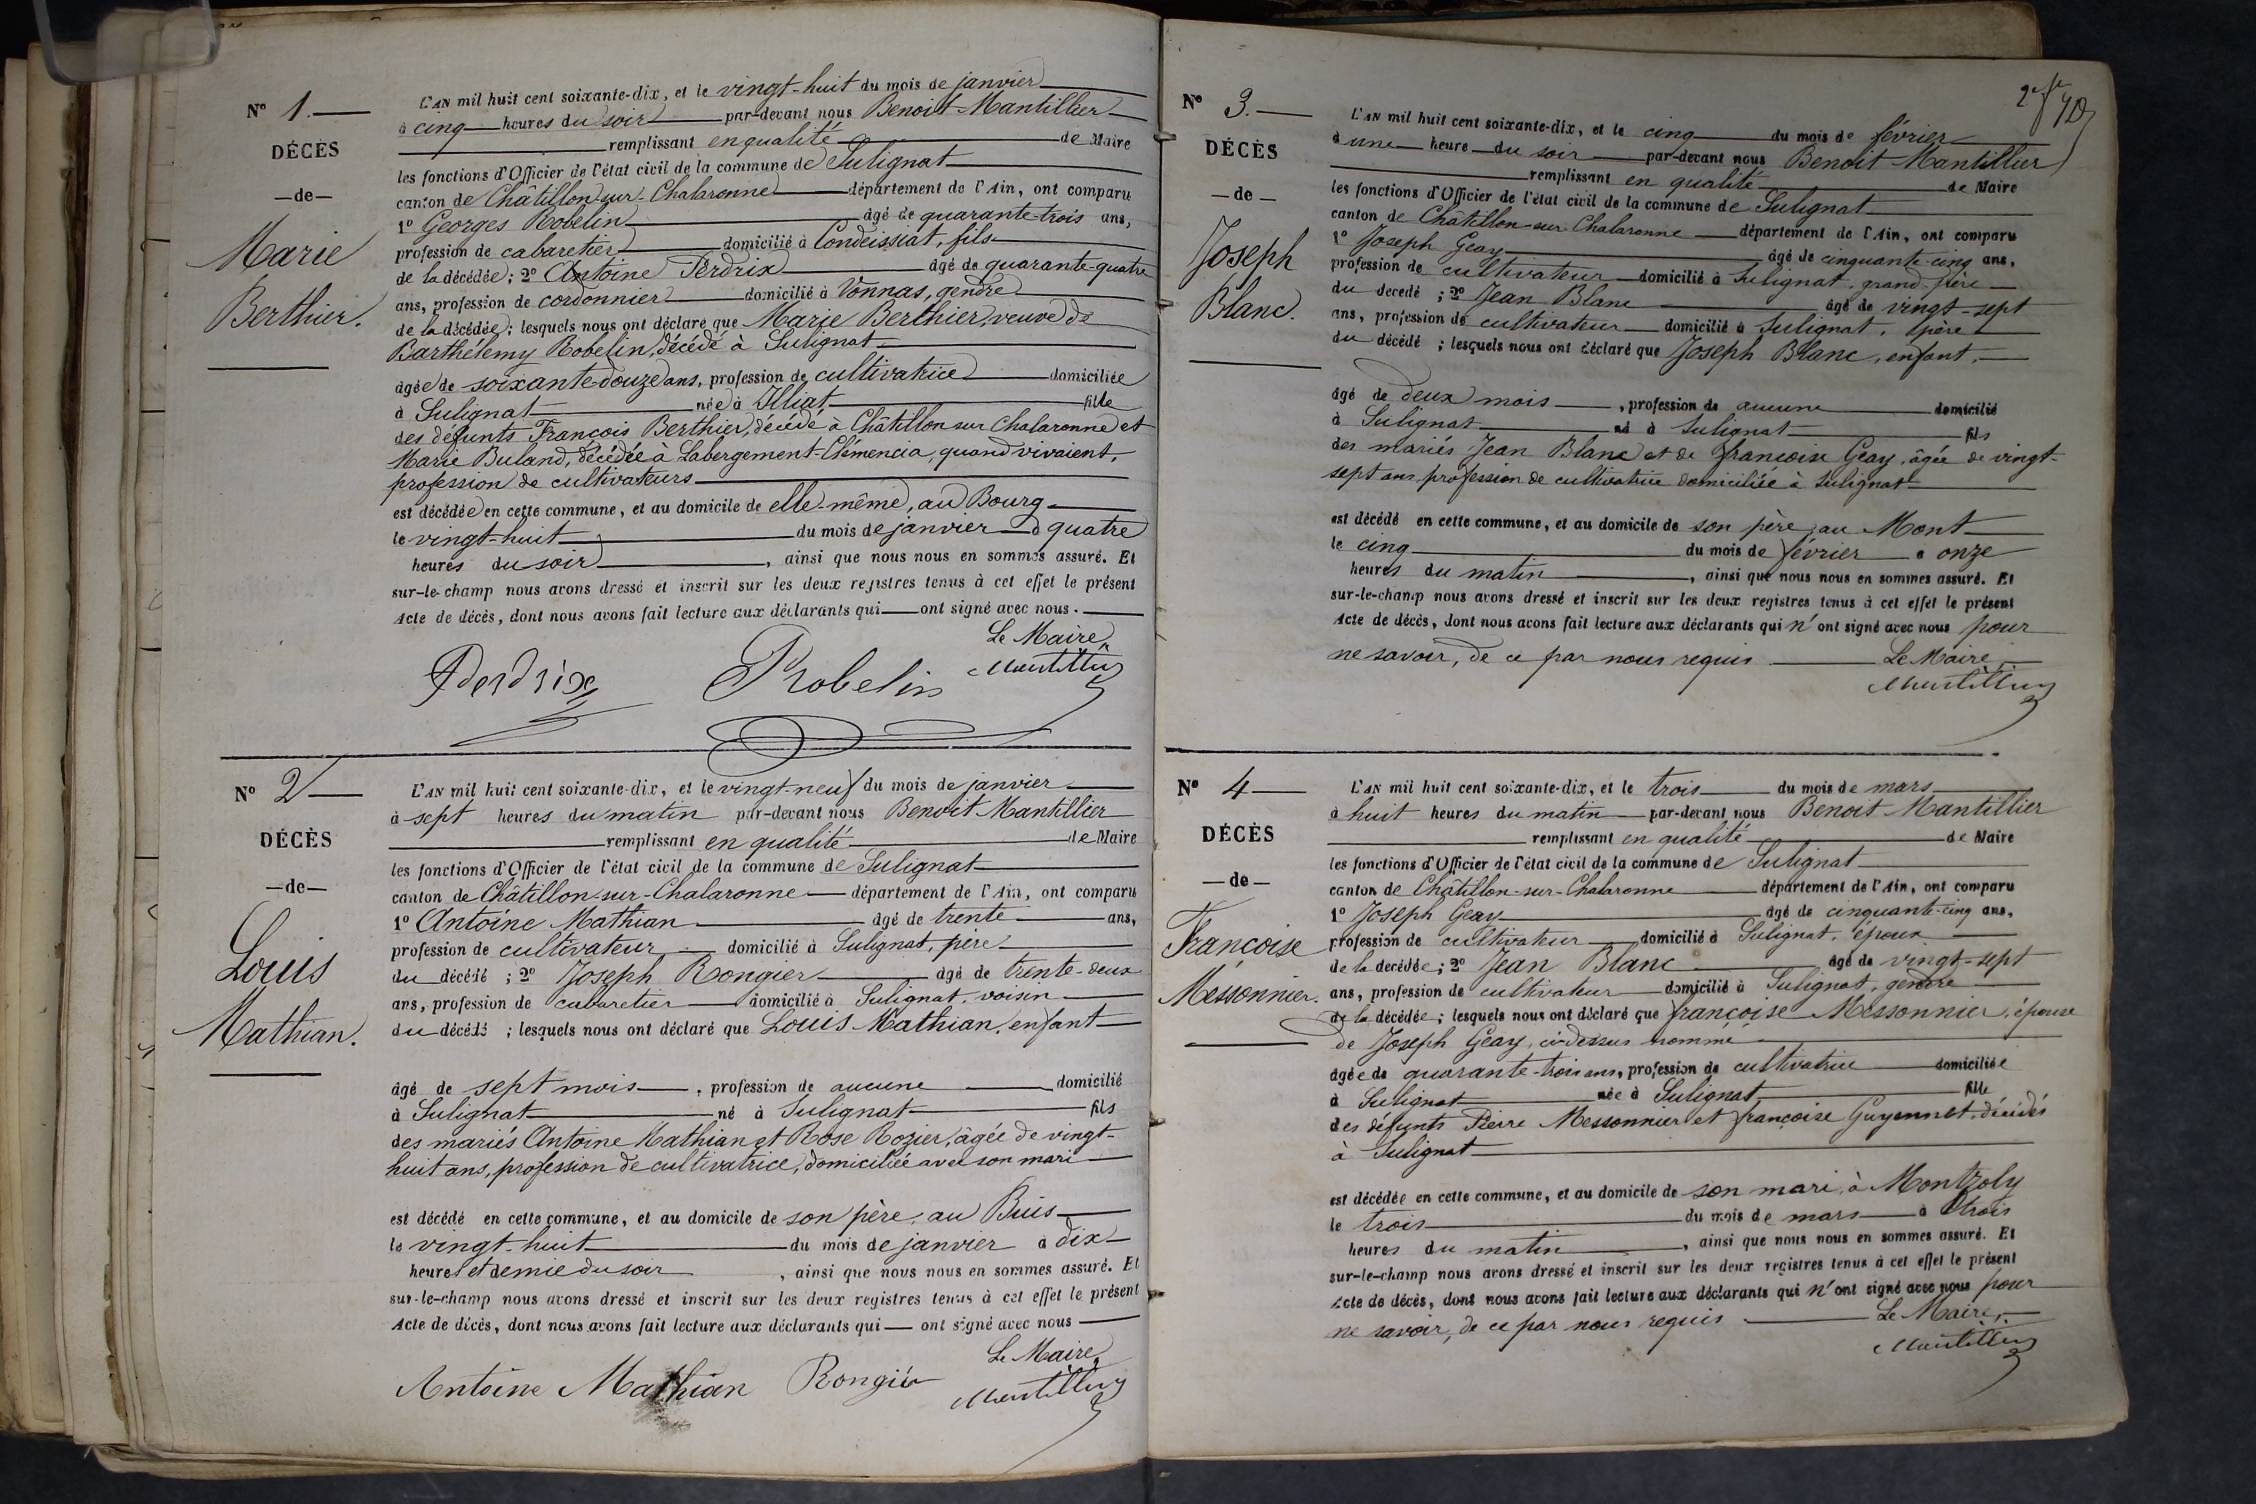 N° 1.
DÉCÈS
—de—
Marie
Berthier.
L'AN mil huit cent soixante-dix, et le vingt-huit du mois de janvier
à cinq heures du soir par-devant nous Benoit Mantillier
remplissant en qualité de Maire
les fonctions d'Officier de l'état civil de la commune de Sulignat
canton de Châtillon-sur-Chalaronne département de l'Ain, ont comparu
1° Georges Robelin âgé de quarante-trois ans,
profession de cabaretier domicilié à Condeissiat, fils
de la décédée ; 2° Antoine Perdrix âgé de quarante-quatre
ans, profession de cordonnier domicilié à Vonnas, gendre
de la décédée ; lesquels nous ont déclaré que Marie Berthier, veuve de
Barthélemy Robelin, décédé à Sulignat
âgée de soixante-douze ans, profession de cultivatrice domiciliée
à Sulignat née à Illiat fille
des défunts François Berthier, décédé à Châtillon sur Chalaronne et
Marie Buland, décédée à Labergement-Clémencia, quand vivaient,
profession de cultivateurs
est décédée en cette commune, et au domicile de elle-même, au Bourg
le vingt-huit du mois de janvier à quatre
heures du soir, ainsi que nous nous en sommes assuré. Et
sur-le-champ nous avons dressé et inscrit sur les deux registres tenus à cet effet le présent
Acte de décès, dont nous avons fait lecture aux déclarants qui — ont signé avec nous.
Le Maire,
Perdrix Robelin Mantillier
N° 2
DÉCÈS
—de—
Louis
Mathian.
L'AN mil huit cent soixante-dix, et le vingt-neuf du mois de janvier
à sept heures du matin par-devant nous Benoit Mantillier
remplissant en qualité de Maire
les fonctions d'Officier de l'état civil de la commune de Sulignat
canton de Châtillon-sur-Chalaronne département de l'Ain, ont comparu
1° Antoine Mathian âgé de trente ans,
profession de cultivateur domicilié à Sulignat, père
du décédé ; 2° Joseph Rongier âgé de trente-deux
ans, profession de cabaretier domicilié à Sulignat, voisin
du décédé ; lesquels nous ont déclaré que Louis Mathian, enfant
âgé de sept mois, profession de aucune domicilié
à Sulignat né à Sulignat fils
des mariés Antoine Mathian et Rose Rozier, âgée de vingt-
huit ans, profession de cultivatrice, domiciliée avec son mari
est décédé en cette commune, et au domicile de son père, au Buis
le vingt-huit du mois de janvier à dix
heures et demie du soir, ainsi que nous nous en sommes assuré. Et
sur-le-champ nous avons dressé et inscrit sur les deux registres tenus à cet effet le présent
Acte de décès, dont nous avons fait lecture aux déclarants qui — ont signé avec nous
Le Maire,
Antoine Mathian Rongier Mantillier
2e fe
70
N° 3.
DÉCÈS
—de—
Joseph
Blanc.
L'AN mil huit cent soixante-dix, et le cinq du mois de février
à une heure du soir par-devant nous Benoit Mantillier
remplissant en qualité de Maire
les fonctions d'Officier de l'état civil de la commune de Sulignat
canton de Châtillon-sur-Chalaronne département de l'Ain, ont comparu
1° Joseph Geay âgé de cinquante-cinq ans,
profession de cultivateur domicilié à Sulignat, grand-père
du décédé ; 2° Jean Blanc âgé de vingt-sept
ans, profession de cultivateur domicilié à Sulignat, père
du décédé ; lesquels nous ont déclaré que Joseph Blanc, enfant,
âgé de deux mois, profession de aucune domicilié
à Sulignat né à Sulignat fils
des mariés Jean Blanc et de françoise Geay, âgée de vingt-
sept ans profession de cultivatrice domiciliée à Sulignat
est décédé en cette commune, et au domicile de son père, au Mont
le cinq du mois de février à onze
heures du matin, ainsi que nous nous en sommes assuré. Et
sur-le-champ nous avons dressé et inscrit sur les deux registres tenus à cet effet le présent
Acte de décès, dont nous avons fait lecture aux déclarants qui n'ont signé avec nous pour
ne savoir, de ce par nous requis Le Maire,
Mantillier
N° 4
DÉCÈS
—de—
Françoise
Messonnier.
L'AN mil huit cent soixante-dix, et le trois du mois de mars
à huit heures du matin par-devant nous Benoit Mantillier
remplissant en qualité de Maire
les fonctions d'Officier de l'état civil de la commune de Sulignat
canton de Châtillon-sur-Chalaronne département de l'Ain, ont comparu
1° Joseph Geay âgé de cinquante-cinq ans,
profession de cultivateur domicilié à Sulignat, époux
de la décédée ; 2° Jean Blanc âgé de vingt-sept
ans, profession de cultivateur domicilié à Sulignat, gendre
de la décédée ; lesquels nous ont déclaré que françoise Messonnier, épouse
de Joseph Geay, ci-dessus nommé
âgée de quarante-trois ans, profession de cultivatrice domiciliée
à Sulignat née à Sulignat fille
des défunts Pierre Messonnier et françoise Guyennet, décédés
à Sulignat
est décédée en cette commune, et au domicile de son mari, à Montzoly
le trois du mois de mars à trois
heures du matin, ainsi que nous nous en sommes assuré. Et
sur-le-champ nous avons dressé et inscrit sur les deux registres tenus à cet effet le présent
Acte de décès, dont nous avons fait lecture aux déclarants qui n'ont signé avec nous pour
ne savoir, de ce par nous requis Le Maire,
Mantillier